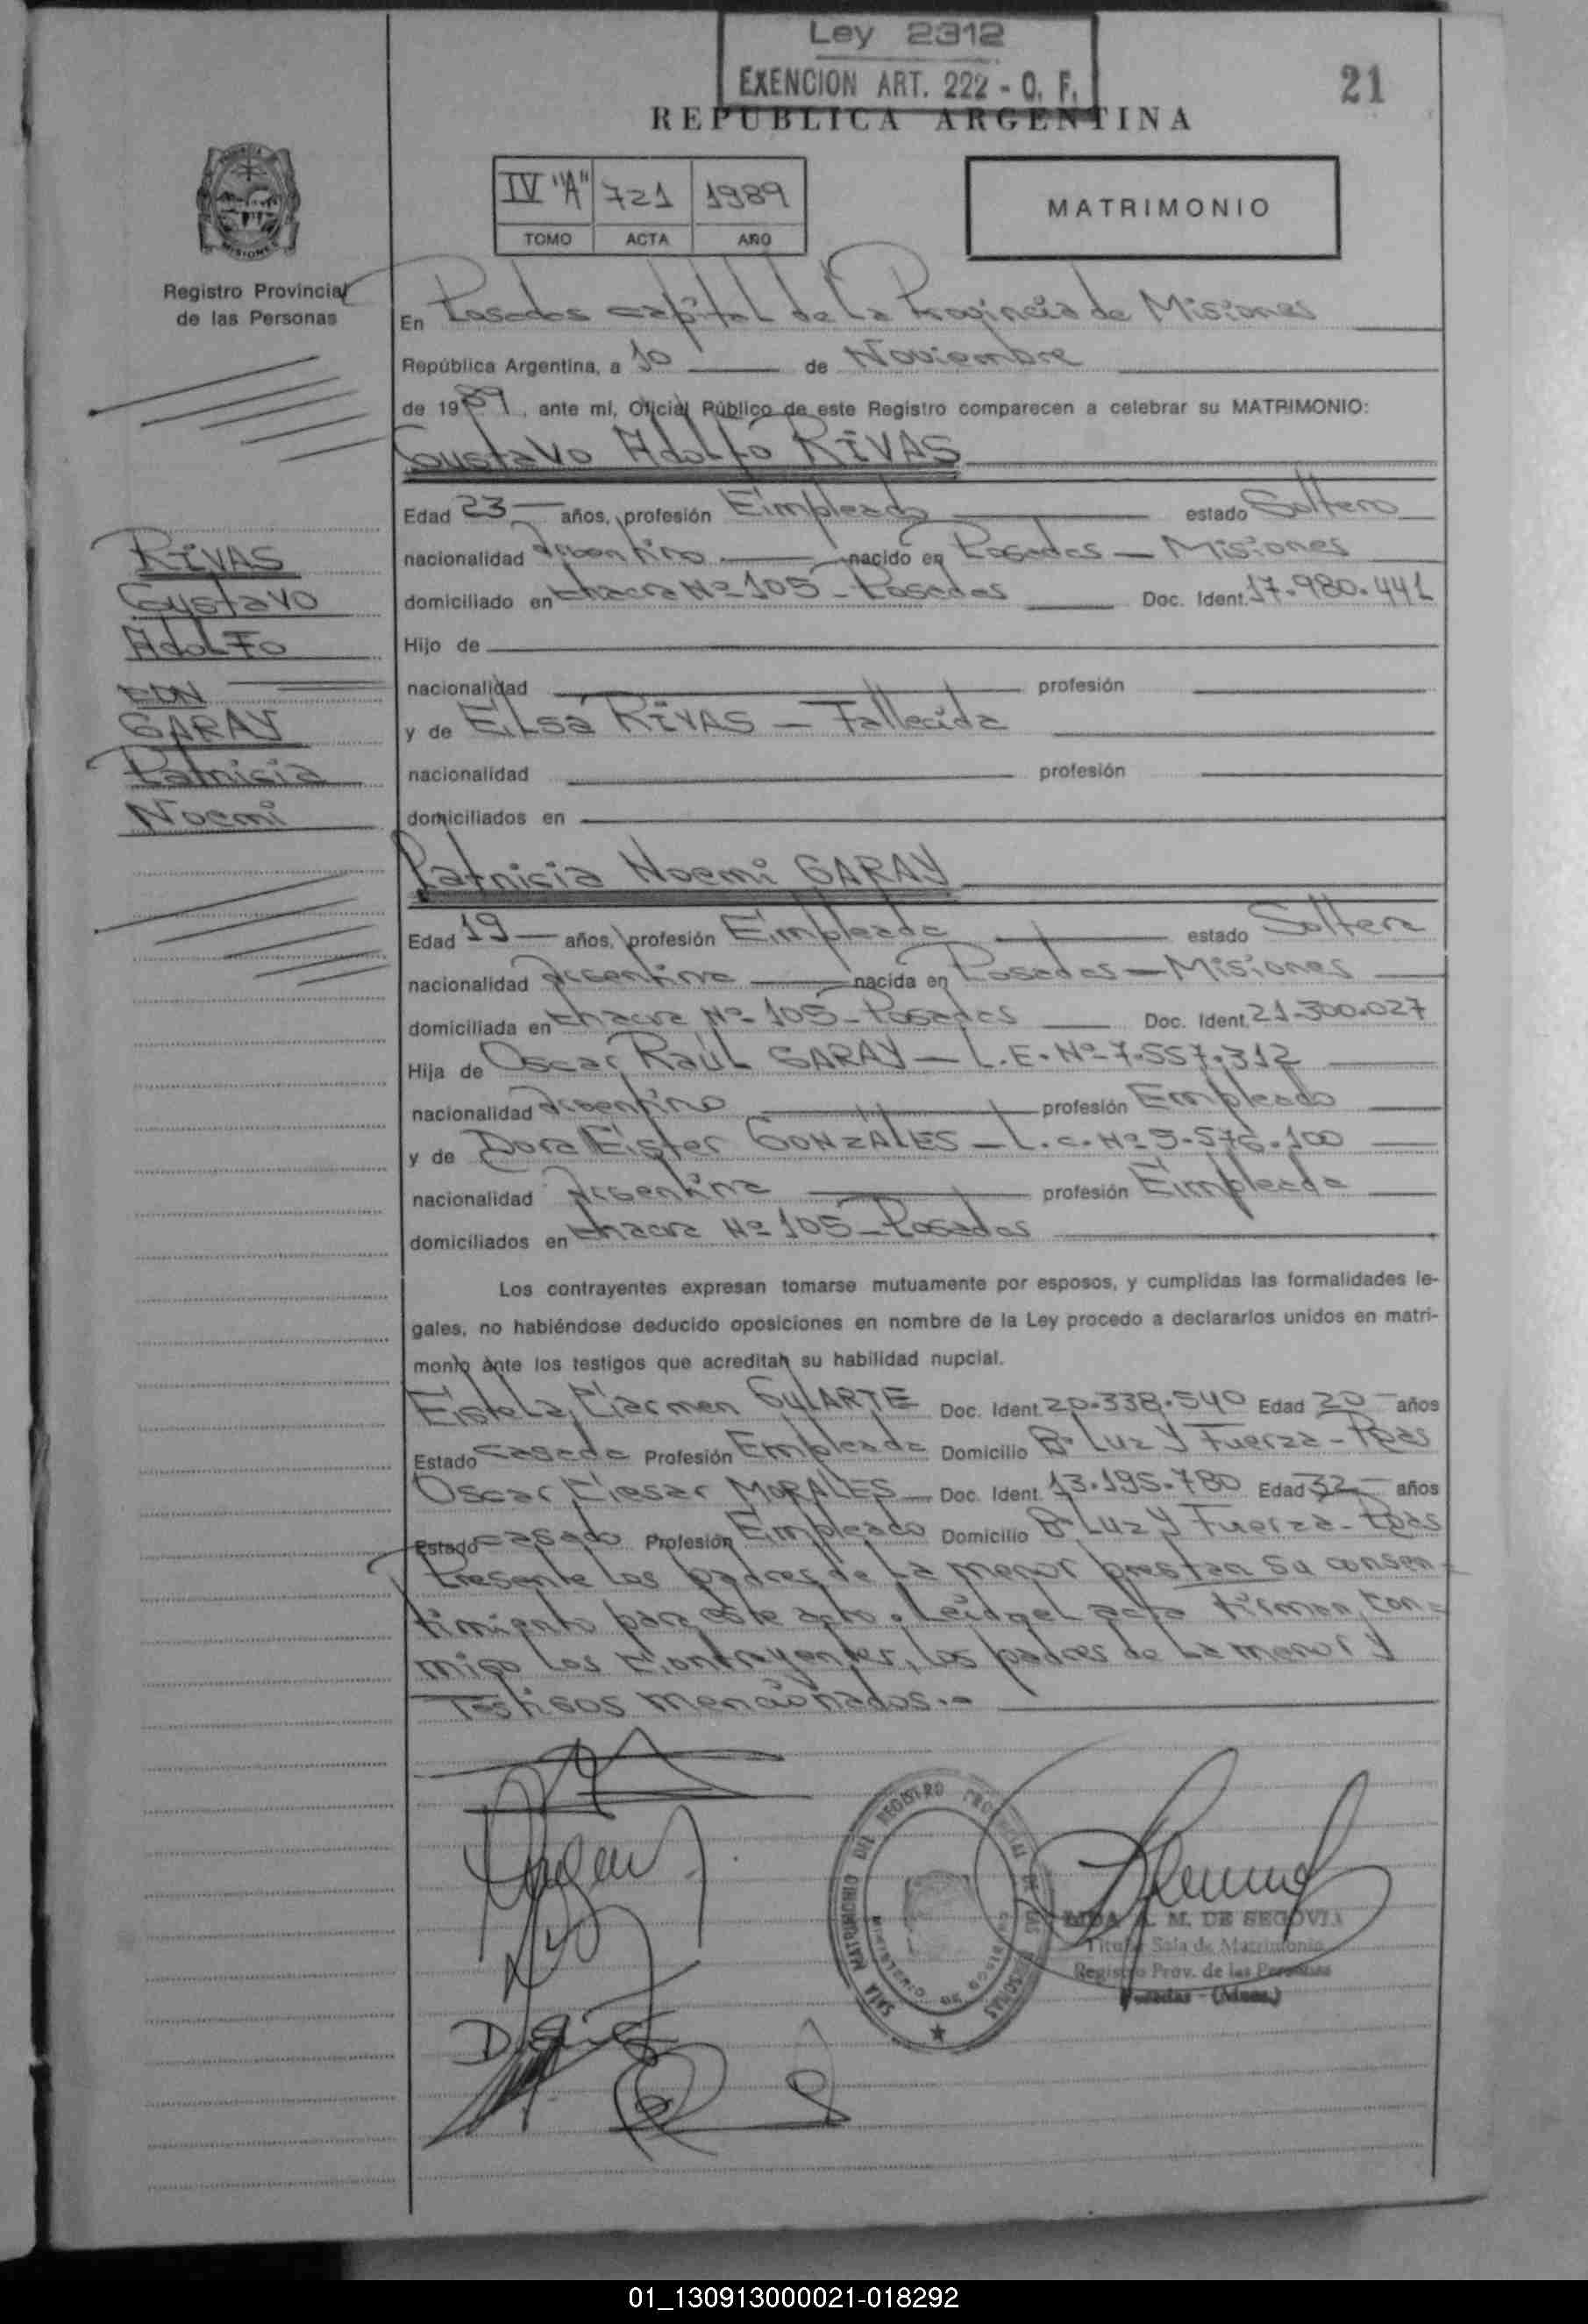 Ley 2312
EXENCION ART. 222 - O. F.
21
REPUBLICA ARGENTINA
IV "A" 721 1989
TOMO ACTA AÑO
MATRIMONIO
Registro Provincial
de las Personas
En Posadas capital de la Provincia de Misiones
República Argentina, a 10 de Noviembre
de 1989, ante mí, Oficial Público de este Registro comparecen a celebrar su MATRIMONIO:
Gustavo Adolfo RIVAS
Edad 23 años, profesión Empleado estado Soltero
nacionalidad Argentino nacido en Posadas - Misiones
domiciliado en Chacra Nº 105 - Posadas Doc. Ident. 17.980.441
Hijo de
nacionalidad profesión
y de Elsa RIVAS - Fallecida
nacionalidad profesión
domiciliados en
RIVAS
Gustavo
Adolfo
CON
GARAY
Patricia
Noemi
Patricia Noemi GARAY
Edad 19 años, profesión Empleada estado Soltera
nacionalidad Argentina nacida en Posadas - Misiones
domiciliada en Chacra Nº 105 - Posadas Doc. Ident. 21.300.027
Hija de Oscar Raúl GARAY - L.E. Nº 7.557.312
nacionalidad Argentino profesión Empleado
y de Dora Ester GONZALES - L.C. Nº 5.576.100
nacionalidad Argentina profesión Empleada
domiciliados en Chacra Nº 105 - Posadas
Los contrayentes expresan tomarse mutuamente por esposos, y cumplidas las formalidades le-
gales, no habiéndose deducido oposiciones en nombre de la Ley procedo a declararlos unidos en matri-
monio ante los testigos que acreditan su habilidad nupcial.
Estela Carmen GULARTE Doc. Ident. 20.338.540 Edad 20 años
Estado casada Profesión Empleada Domicilio Bº Luz y Fuerza - Pdas
Oscar Cesar MORALES Doc. Ident. 13.195.780 Edad 32 años
Estado casado Profesión Empleado Domicilio Bº Luz y Fuerza - Pdas
Presente los padres de la menor prestan su consen-
timiento para este acto. Leída el acta firman con-
migo los Contrayentes, los padres de la menor y
Testigos mencionados.-
SALA MATRIMONIO DEL REGISTRO PROVINCIAL DE LAS PERSONAS
A. M. DE SEGOVIA
Titular Sala de Matrimonio
Registro Prov. de las Personas
Posadas - (Mnes.)
01_130913000021-018292